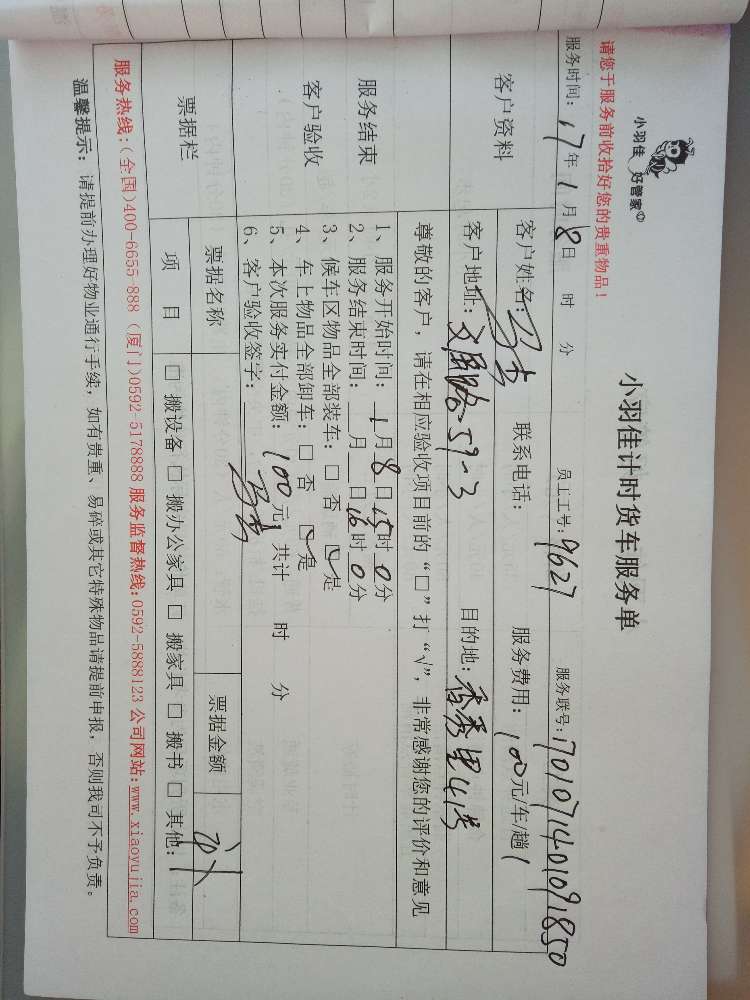 小羽佳 好管家
小羽佳计时货车服务单
请您于服务前收拾好您的贵重物品！
服务时间：17年1月8日 时 分 员工工号：9627 服务联号：1701071401091850
客户资料
客户姓名： 联系电话： 服务费用：100元/车/趟1
客户地址：文屏路59-3 目的地：香秀里41号
尊敬的客户，请在相应验收项目前的“□”打“√”，非常感谢您的评价和意见
服务结束
客户验收
1、服务开始时间：1月8日15时0分
2、服务结束时间： 月 日16时0分
3、候车区物品全部装车：□ 否 ☑是
4、车上物品全部卸车：□ 否 ☑是
5、本次服务实付金额：100元，共计 时 分
6、客户验收签字：
票据栏
票据名称 票据金额
项 目 □ 搬设备 □ 搬办公家具 □ 搬家具 □ 搬书 □ 其他：
服务热线：(全国)400-6655-888 (厦门)0592-5178888 服务监督热线：0592-5888123 公司网站：www.xiaoyujia.com
温馨提示：请提前办理好物业通行手续，如有贵重、易碎或其它特殊物品请提前申报，否则我司不予负责。